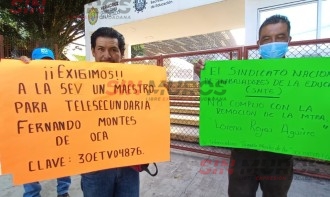 ¡¡EXIGIMOS!!
A LA SEV UN MAESTRO
PARA TELESECUNDARIA
FERNANDO MONTES
DE OCA
CLAVE: 30ETV0487G.
EL SINDICATO NACIONAL
TRABAJADORES DE LA EDUCA
(SNTE)
NO CUMPLIO CON LA
REMOCION DE LA MTRA.
Lorena Rojas Aguirre